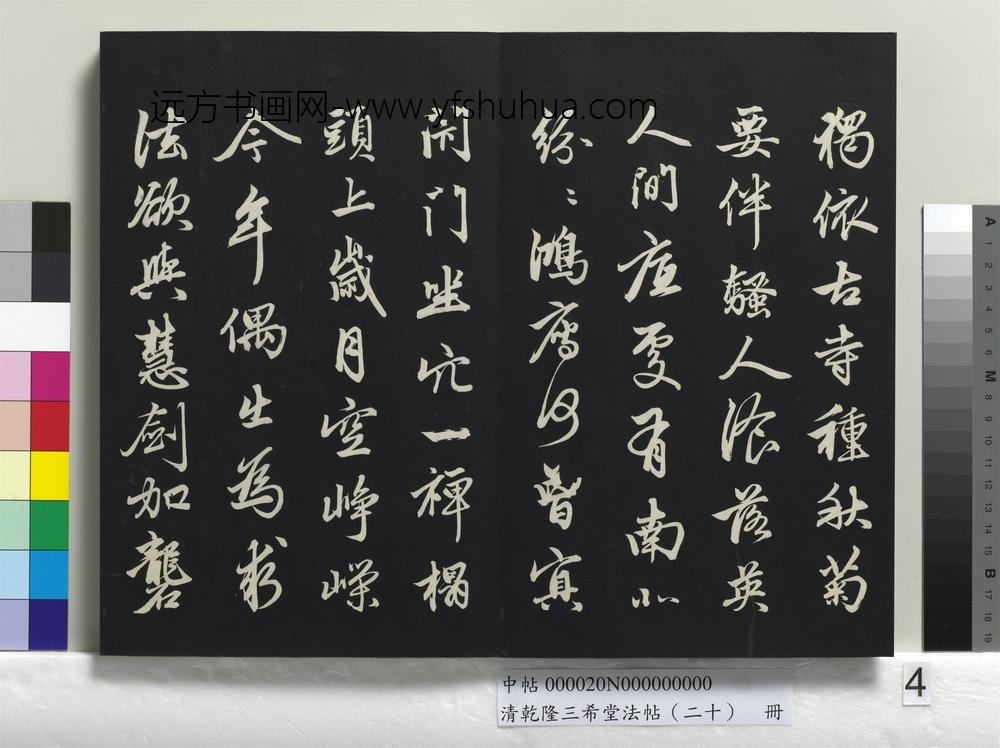 远方书画网-www.yfshuhua.com
獨依古寺種秋菊
要伴騷人湌落英
人間底處有南北
紛〻鴻鴈何曾冥
閉門坐穴一禪榻
頭上歲月空崢嶸
今年偶出為求
法欲與慧劍加礱
中帖 000020N000000000
清乾隆三希堂法帖(二十) 冊
4
A 1 2 3 4 5 6 M 8 9 10 11 12 13 14 15 B 17 18 19